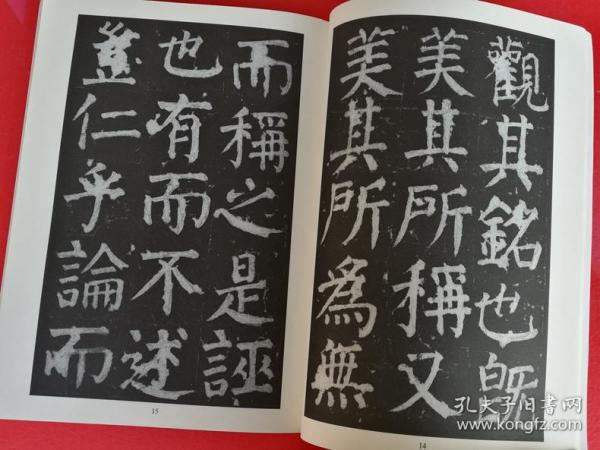 觀其銘也既
美其所稱又
美其所為無
14
而稱之是誣
也有而不述
豈仁乎論而
15
孔夫子旧书网
www.kongfz.com